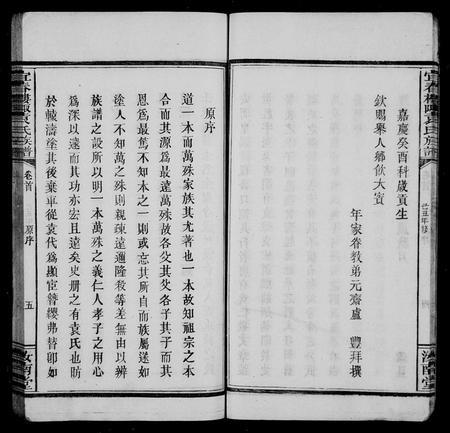 宜春樓陬袁氏族譜
嘉慶癸酉科歲貢生
欽賜舉人鄉飲大賓
年家眷教弟元齋盧 豐拜撰
原序
道一本而萬殊家族其尤著也一本故知祖宗之本
合而其源爲最遠萬殊故各父其父各子其子而其
恩爲最篤不知本之一則或忘其所自而族屬遂如
塗人不知萬之殊則親疎遠邇隆殺等差無由以辨
族譜之設所以明一本萬殊之義仁人孝子之用心
爲深以遠而其功亦宏且遠矣史册之有袁氏也昉
於轅濤塗其後棄車從袁代爲顯宦簪纓弗替卽如
宜春樓陬袁氏族譜
卷首
原序
五
汝南堂